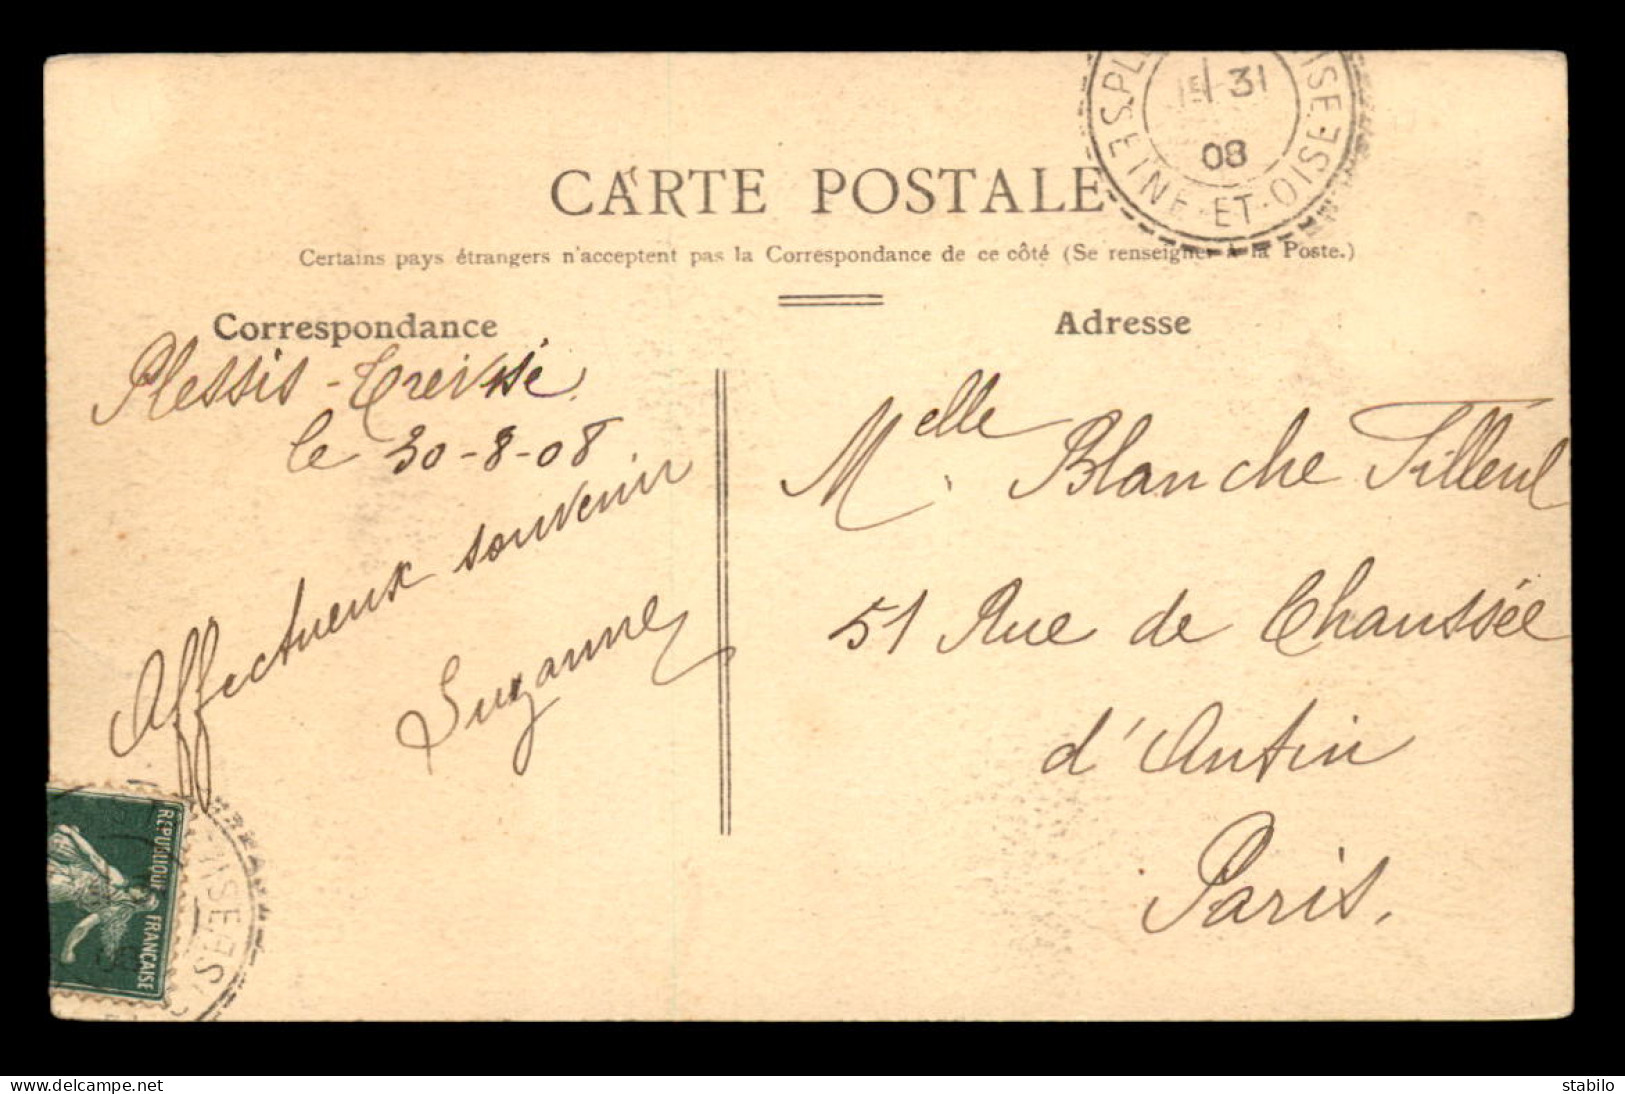 31
08
SEINE-ET-OISE
CARTE POSTALE
Certains pays étrangers n'acceptent pas la Correspondance de ce côté (Se renseigner à la Poste.)
Correspondance
Plessis-Treivse
le 30-8-08
Affectueux souvenir
Suzanne
Adresse
Melle Blanche Tilleul
51 Rue de Chaussée
d'Antin
Paris.
REPUBLIQUE FRANÇAISE
delcampe.net
stabilo